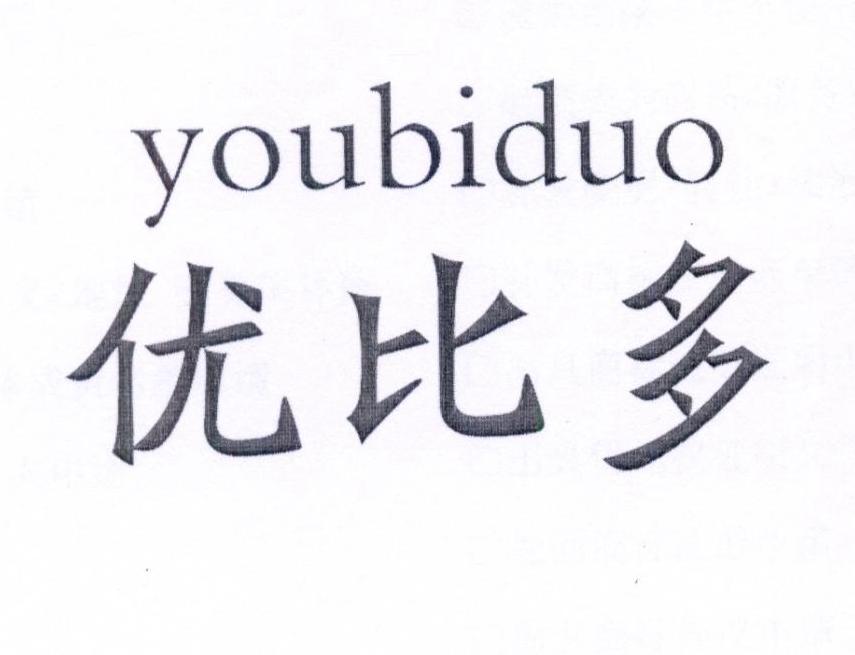 youbiduo
优比多